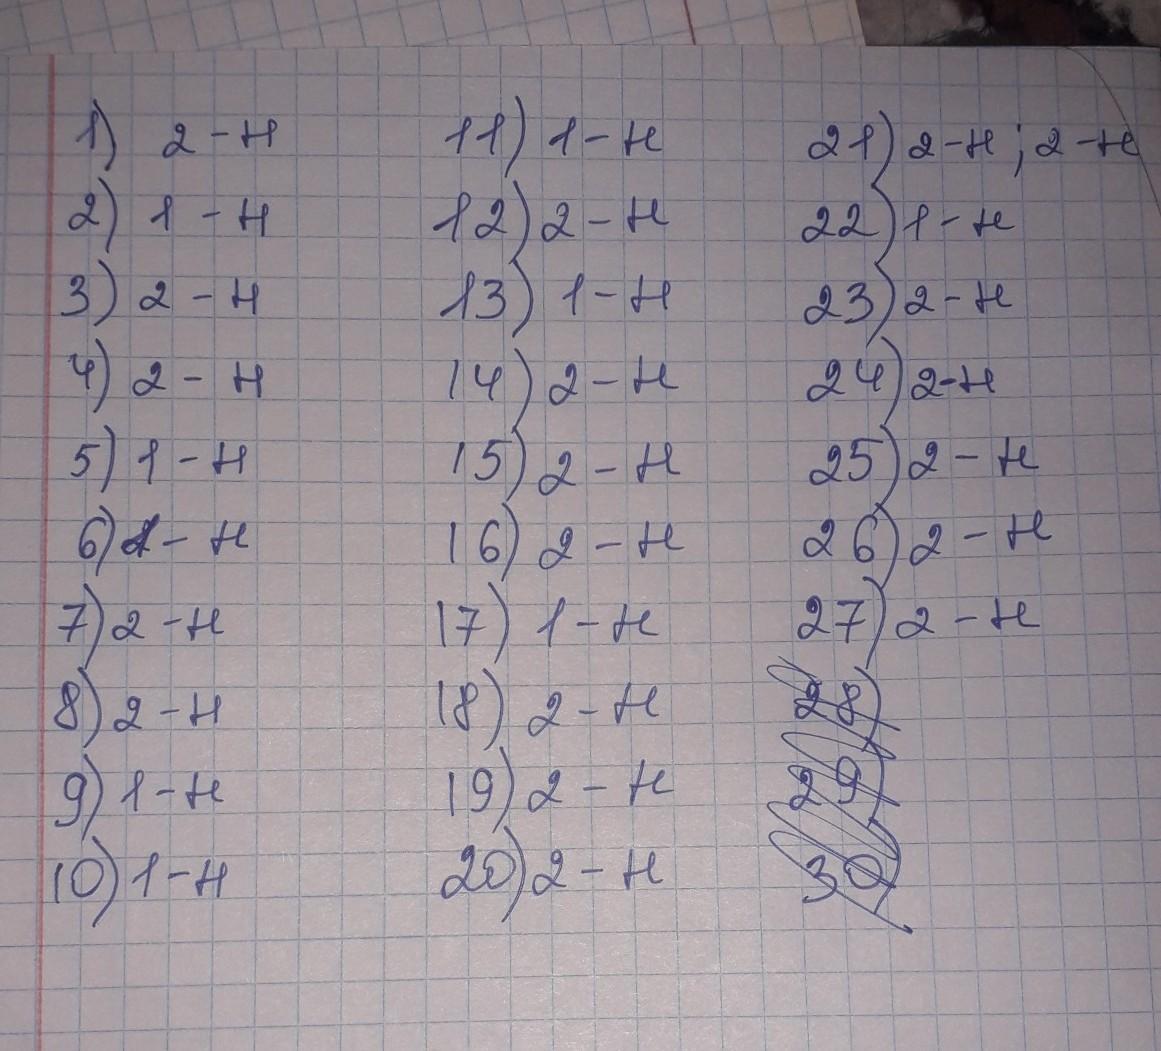 1) 2 - н
2) 1 - н
3) 2 - н
4) 2 - н
5) 1 - н
6) 1 - н
7) 2 - н
8) 2 - н
9) 1 - н
10) 1 - н
11) 1 - н
12) 2 - н
13) 1 - н
14) 2 - н
15) 2 - н
16) 2 - н
17) 1 - н
18) 2 - н
19) 2 - н
20) 2 - н
21) 2 - н ; 2 - н
22) 1 - н
23) 2 - н
24) 2 - н
25) 2 - н
26) 2 - н
27) 2 - н
28)
29)
30)